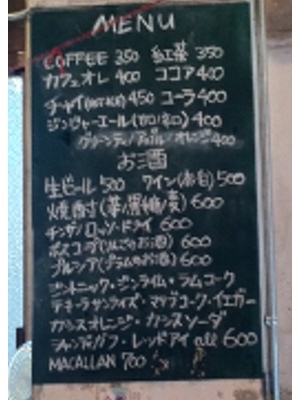 MENU
COFFEE 350 紅茶 350
カフェオレ 400 ココア 400
チャイ(HOT/ICE) 450 コーラ 400
ジンジャーエール(カロ/ネロ) 400
グリーンティ/アップル/オレンジ 400
お酒
生ビール 500 ワイン(赤/白) 500
焼酎(芋/黒糖/麦) 600
チンザノロッソ・ドライ 600
ボスコプ(りんごのお酒) 600
プルシア(プラムのお酒) 600
ジントニック・ジンライム・ラムコーク
テキーラサンライズ・マリブコーク・イエガー
カシスオレンジ・カシスソーダ
シャンディガフ・レッドアイ all 600
MACALLAN 700